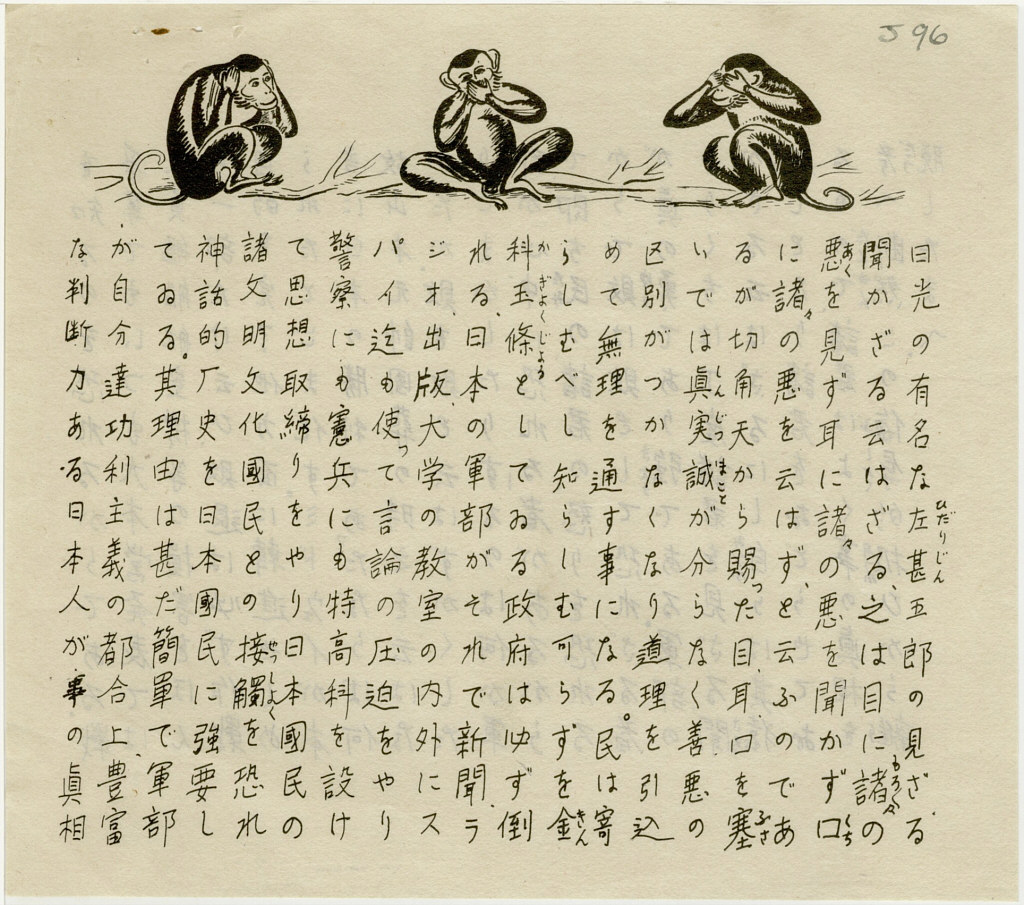 J 96
日光の有名な左甚五郎の見ざる、
聞かざる云はざる、之は目に諸々の
悪を見ず耳に諸々の悪を聞かず口
に諸々の悪を云はず、と云ふのであ
るが切角天から賜った目、耳、口を塞
いでは眞実誠が分らなく善、悪の
区別がつかなくなり道理を引込
めて無理を通す事になる。民は寄
らしむべし知らしむ可らずを金
科玉條としてゐる政府は必ず倒
れる、日本の軍部がそれで新聞、ラ
ジオ、出版、大学の教室の内外にス
パイ迄も使って言論の圧迫をやり
警察にも憲兵にも特高科を設け
て思想取締りをやり日本國民の
諸文明文化國民との接觸を恐れ
神話的厂史を日本國民に強要し
てゐる。其理由は甚だ簡単で、軍部
が自分達功利主義の都合上、豊富
な判断力ある日本人が事の眞相